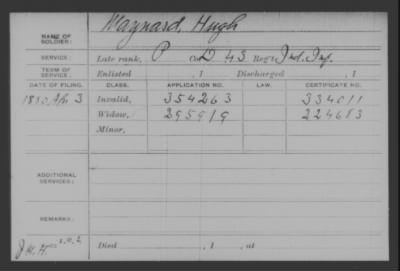 Maynard, Hugh
NAME OF SOLDIER:
SERVICE: Late rank, P Co. D 43 Reg't Ind. Inf.
TERM OF SERVICE: Enlisted , 1 Discharged , 1
DATE OF FILING. CLASS. APPLICATION NO. LAW. CERTIFICATE NO.
1880, Apr 3 Invalid, 354263 334011
Widow, 295919 224683
Minor,
ADDITIONAL SERVICES:
REMARKS:
Died , 1 , at